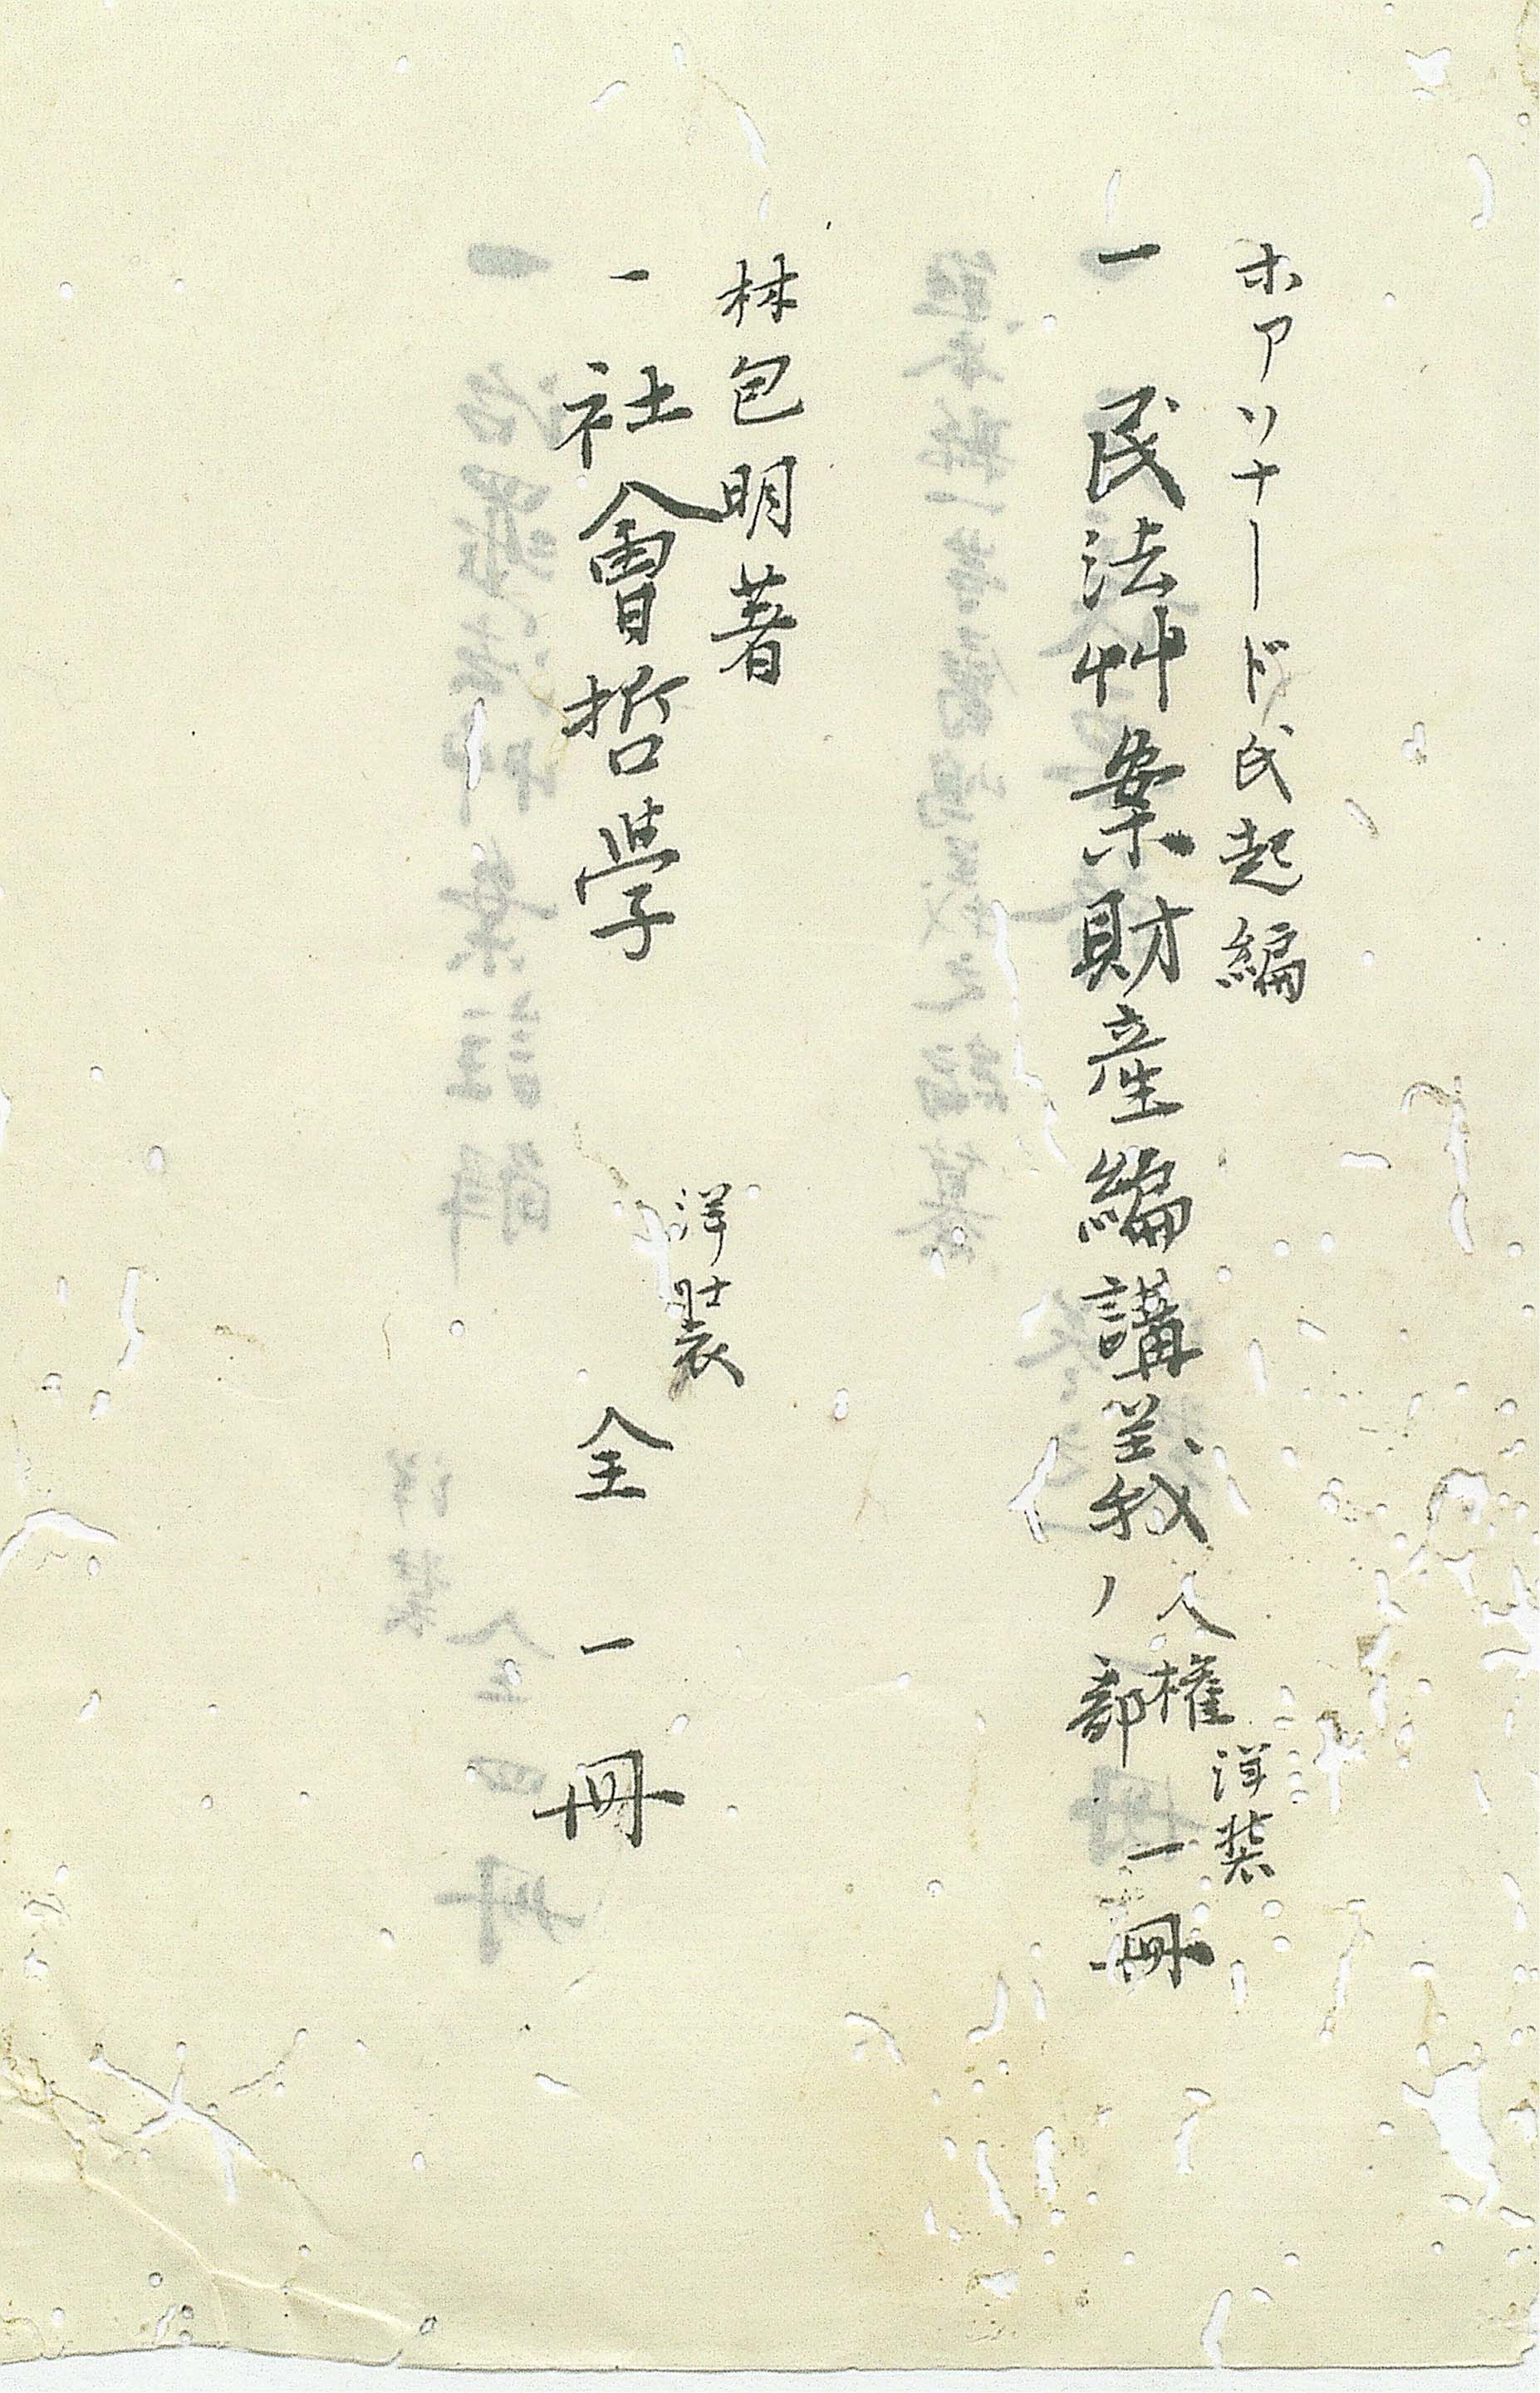 ホアソナード氏起編
一 民法艸案財産編講義 人權
ノ部
洋装
一冊
林包明著
一 社會哲學
洋装
全一冊